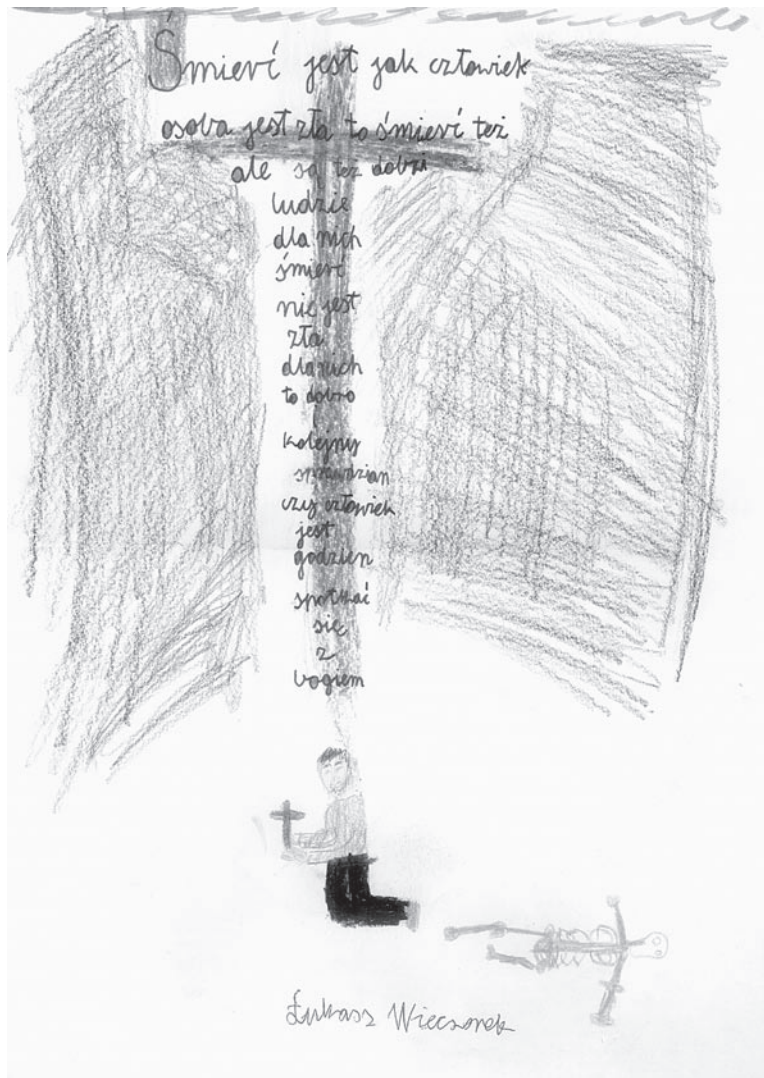 Śmierć jest jak człowiek
osoba jest zła to śmierć też
ale są też dobrzi
ludzie
dla nich
śmierć
nie jest
zła
dla nich
to dobro
i
kolejny
sprawdzian
czy człowiek
jest
godzien
spotkać
się
z
bogiem
Łukasz Wieczorek